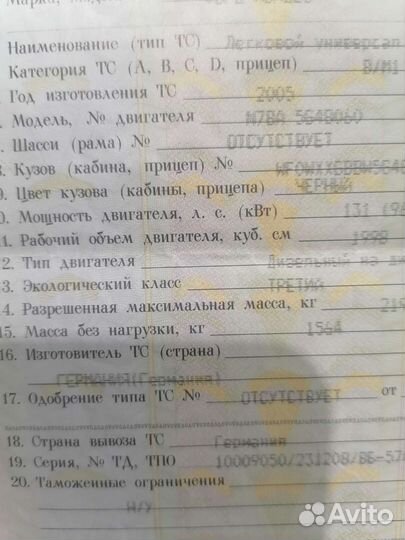 Наименование (тип ТС) Легковой универсал
Категория ТС (A, B, C, D, прицеп) B/M1
Год изготовления ТС 2005
Модель, № двигателя N7BA 5G48060
Шасси (рама) № ОТСУТСТВУЕТ
8. Кузов (кабина, прицеп) №
9. Цвет кузова (кабины, прицепа) ЧЕРНЫЙ
0. Мощность двигателя, л. с. (кВт) 131
11. Рабочий объем двигателя, куб. см 1998
2. Тип двигателя Дизельный на
3. Экологический класс ТРЕТИЙ
4. Разрешенная максимальная масса, кг
15. Масса без нагрузки, кг 1564
16. Изготовитель ТС (страна)
ГЕРМАНИЯ(Германия)
17. Одобрение типа ТС № ОТСУТСТВУЕТ от
18. Страна вывоза ТС Германия
19. Серия, № ТД, ТПО 10009050/231208/ВБ-57
20. Таможенные ограничения
Н/У
Avito